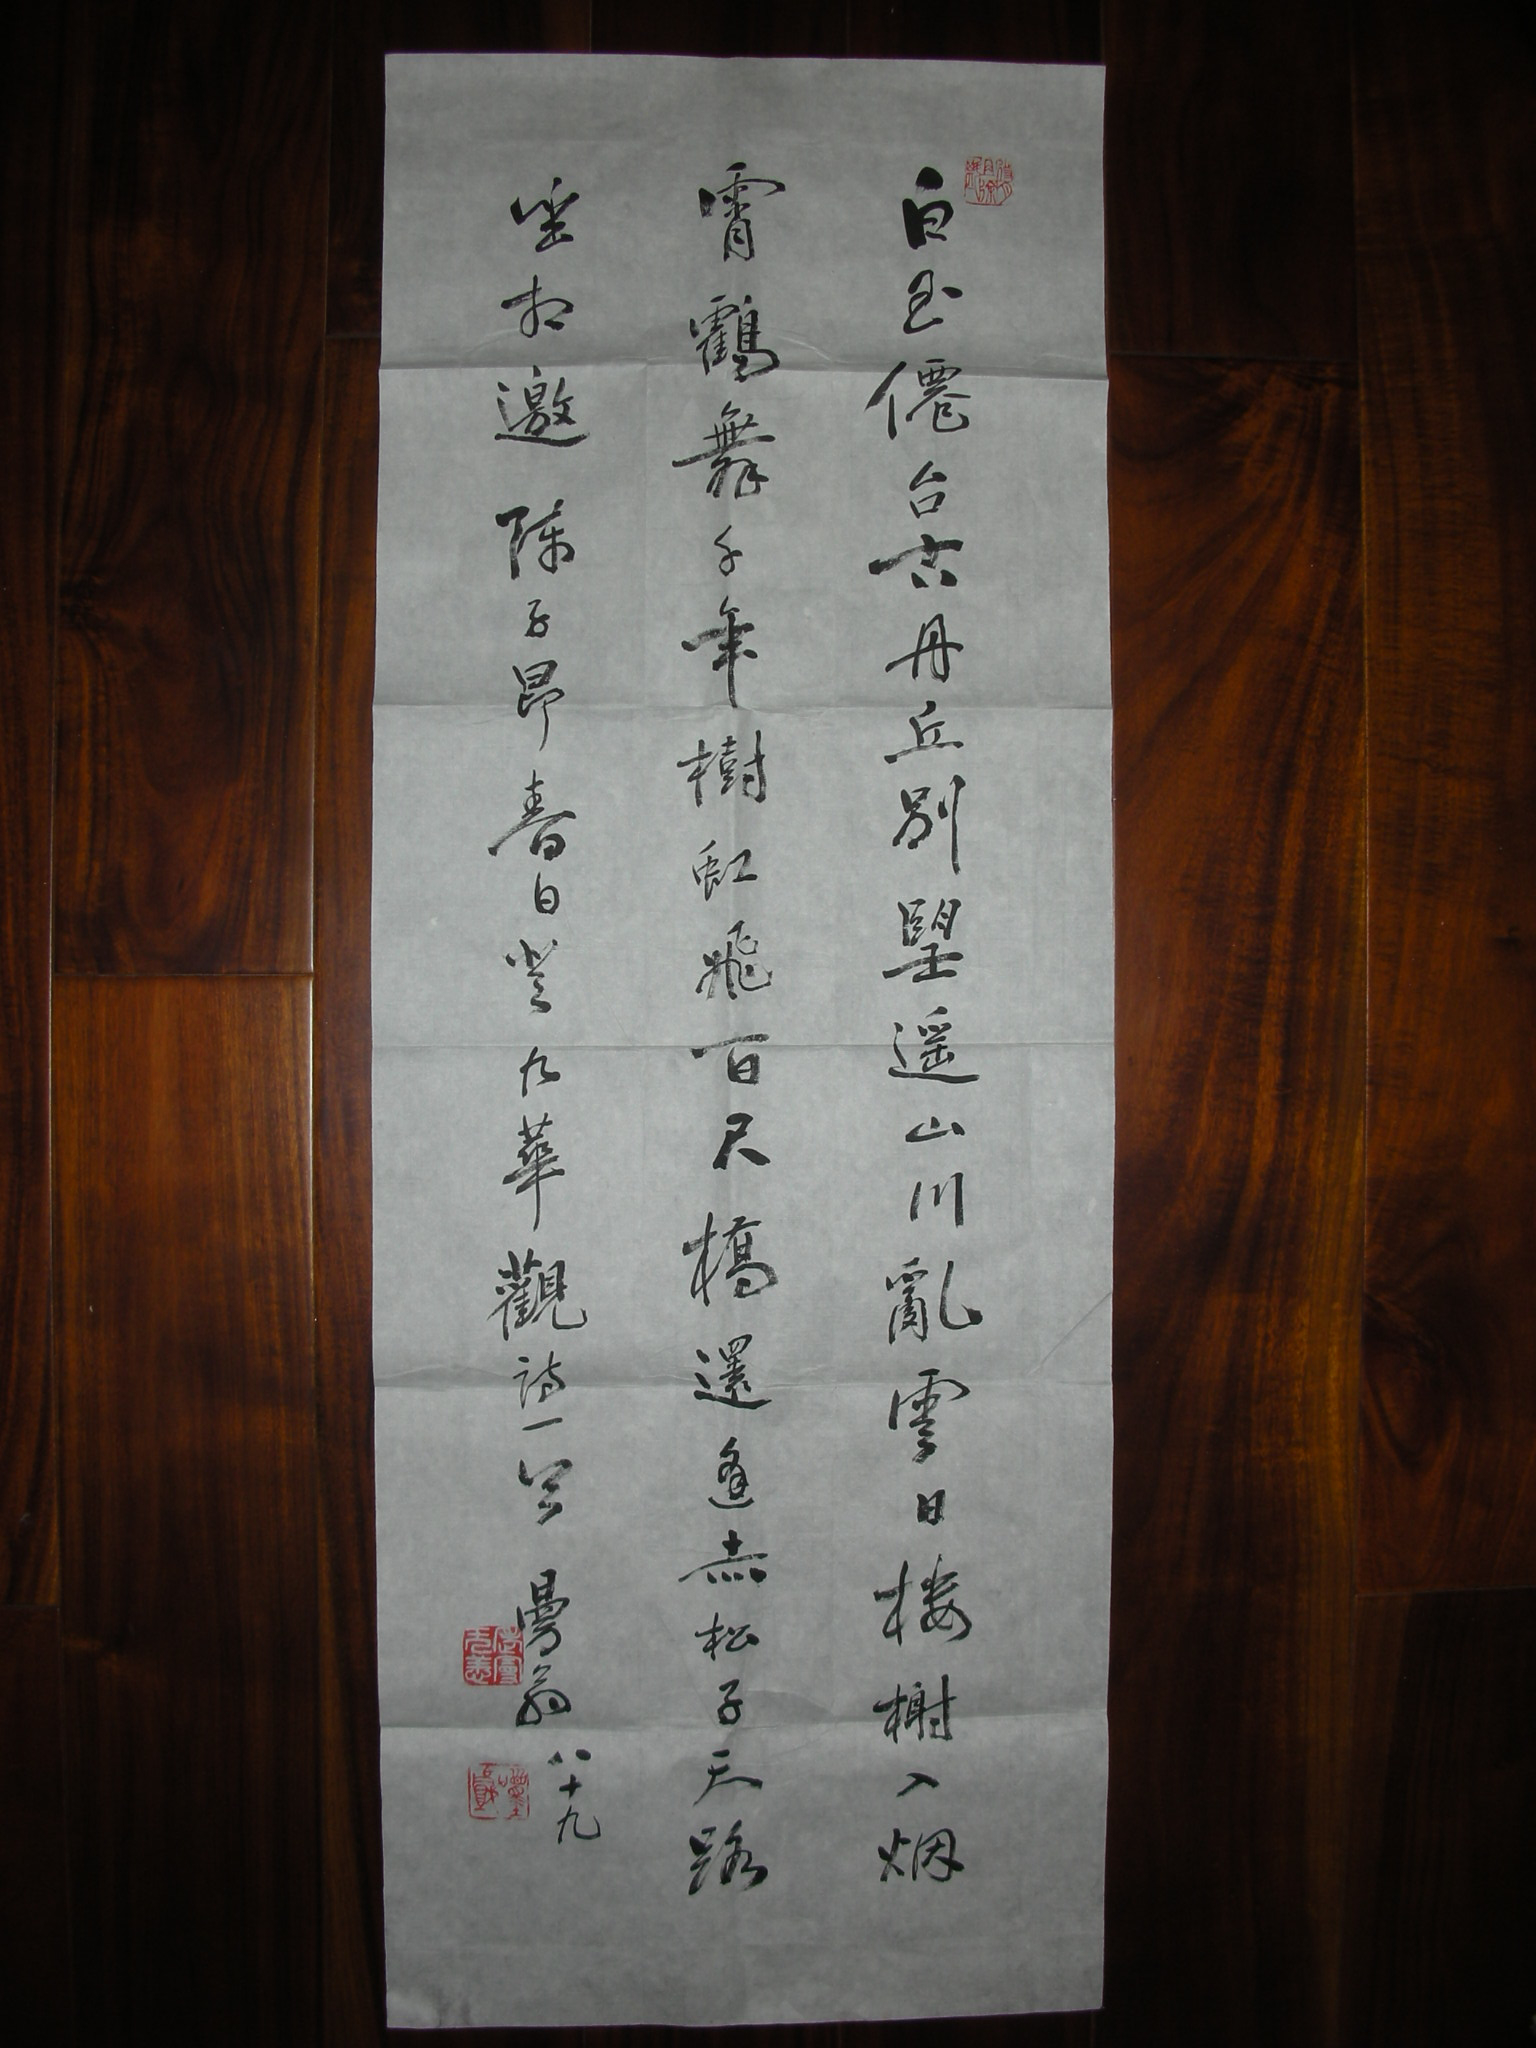 白玉僊台古丹丘別朢遥山川亂雲日楼榭入烟
霄鶴舞千年樹虹飛百尺橋還逢赤松子天路
坐相邀 陳子昂春日登九華觀詩一首 曼翁
八十九